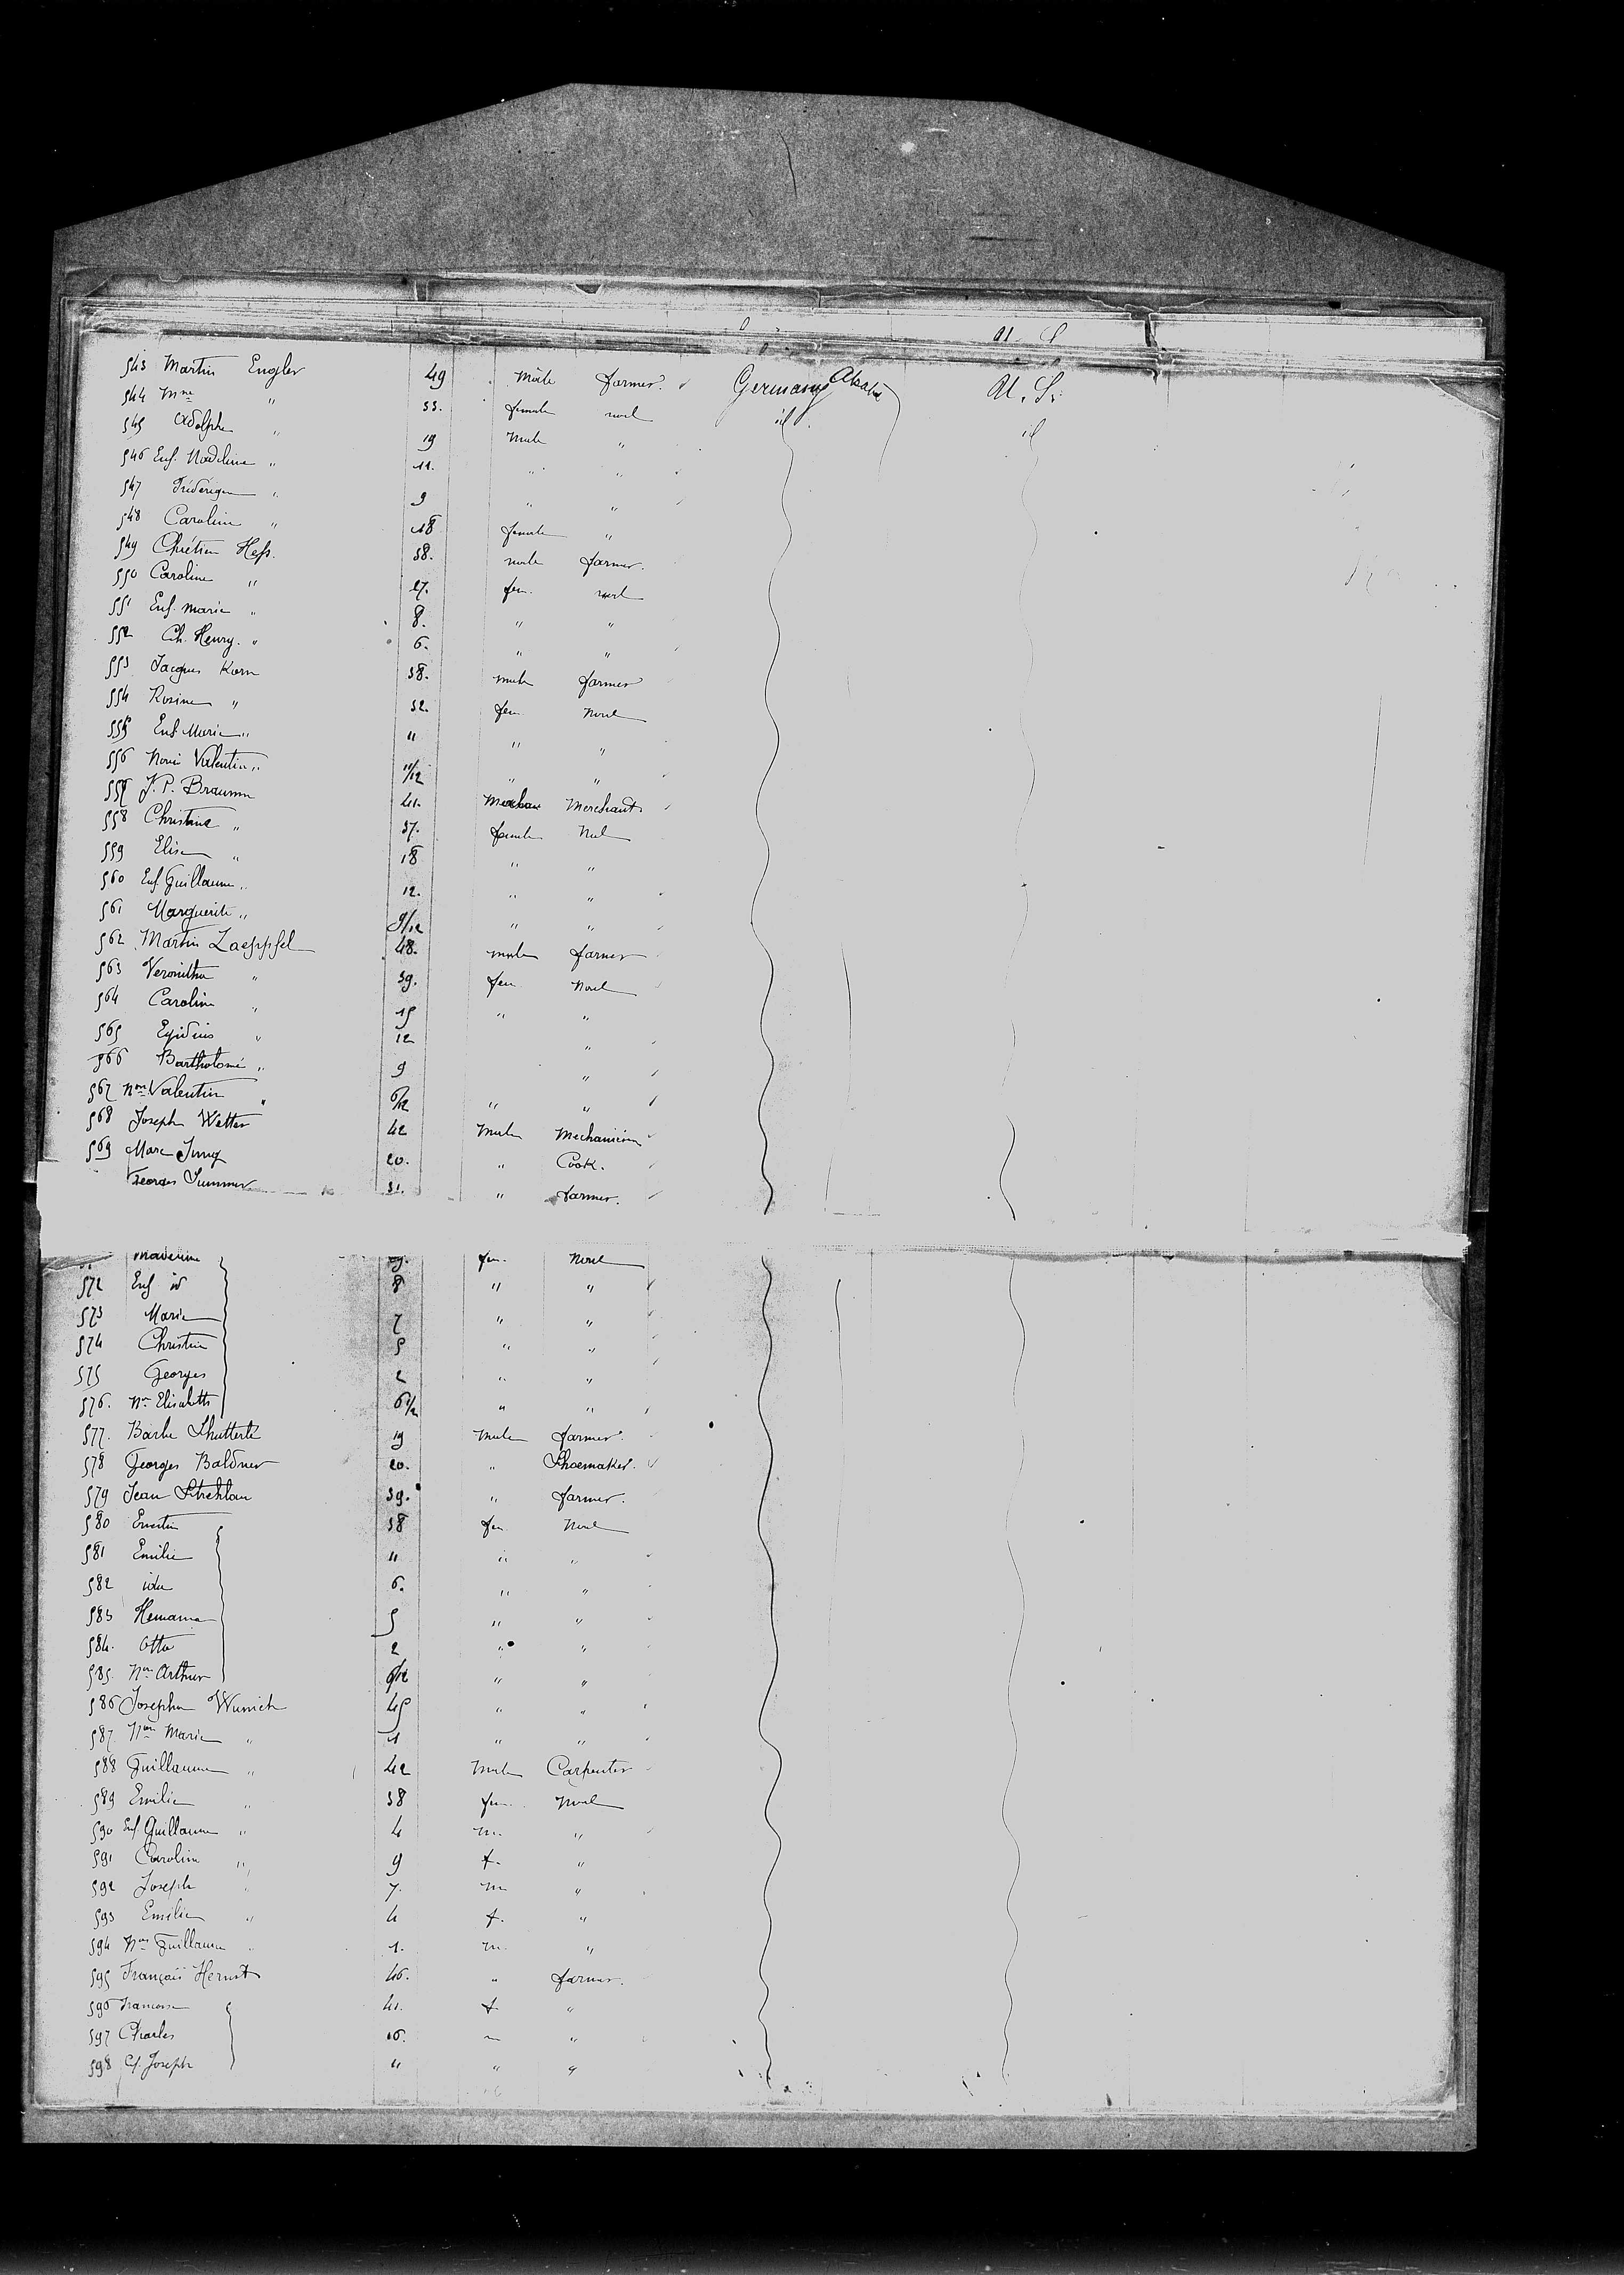 U. S.
543 Martin Engler 49 Male farmer. Germany Alsace U. S.
544 Mme " 33. female none id id
545 Adolphe " 19 Male "
546 Enf. Madeline " 11. " "
547 Frédérique " 9 " "
548 Caroline " 18 female "
549 Chrétien Hess. 38. male farmer.
550 Caroline " 27. fem. none
551 Enf. Marie " 8. " "
552 Ch. Henry. " 6. " "
553 Jacques Korn 38. male farmer
554 Rosine " 32. fem None
555 Enf Marie " 11 " "
556 Valentin " 11/12 " "
557 J. P. Braumn 41. Merchant
558 Christine " 37. female None
559 Elise " 18 " "
560 Enf. Guillaume " 12. " "
561 Marguerite " 9/12 " "
562 Martin Zaeppfel 48. male farmer
563 " 39. fem None
564 Caroline " 15 " "
565 Egidius " 12 "
566 Bartholomé " 9 "
567 Non Valentin " 6/12 " "
568 Joseph Wetter 42 Male Mechanician
569 Marc Jung 20. " Cook.
Georges Summer 31. " farmer.
fem. None
572 Enf id 8 " "
573 Marie 7 " "
574 Christine 5 " "
575 Georges 2 " "
576. Nn Elisabeth 6/12 " "
577. Barbe 19 Male farmer.
578 Georges Baldner 20. " Shoemaker.
579 Jean Strehlau 39. " farmer.
580 38 fem None
581 Emilie 11 " "
582 ida 6. " "
583 5 " "
584. Otto 2 " "
585. Non Arthur 6/12 " "
586 Josepha Wunich 45 " "
587. Non Marie " 1 " "
588 Guillaume " 42 Male Carpenter
589 Emilie " 38 fem. None
590 Enf. Guillaume " 4 m. "
591 Caroline " 9 f. "
592 Joseph " 7. m "
593 Emilie " 4 f. "
594 Non Guillaume " 1. m. "
595 François Hernst 46. " farmer.
596 41. f. "
597 Charles 16. m "
598 Joseph 11 " "